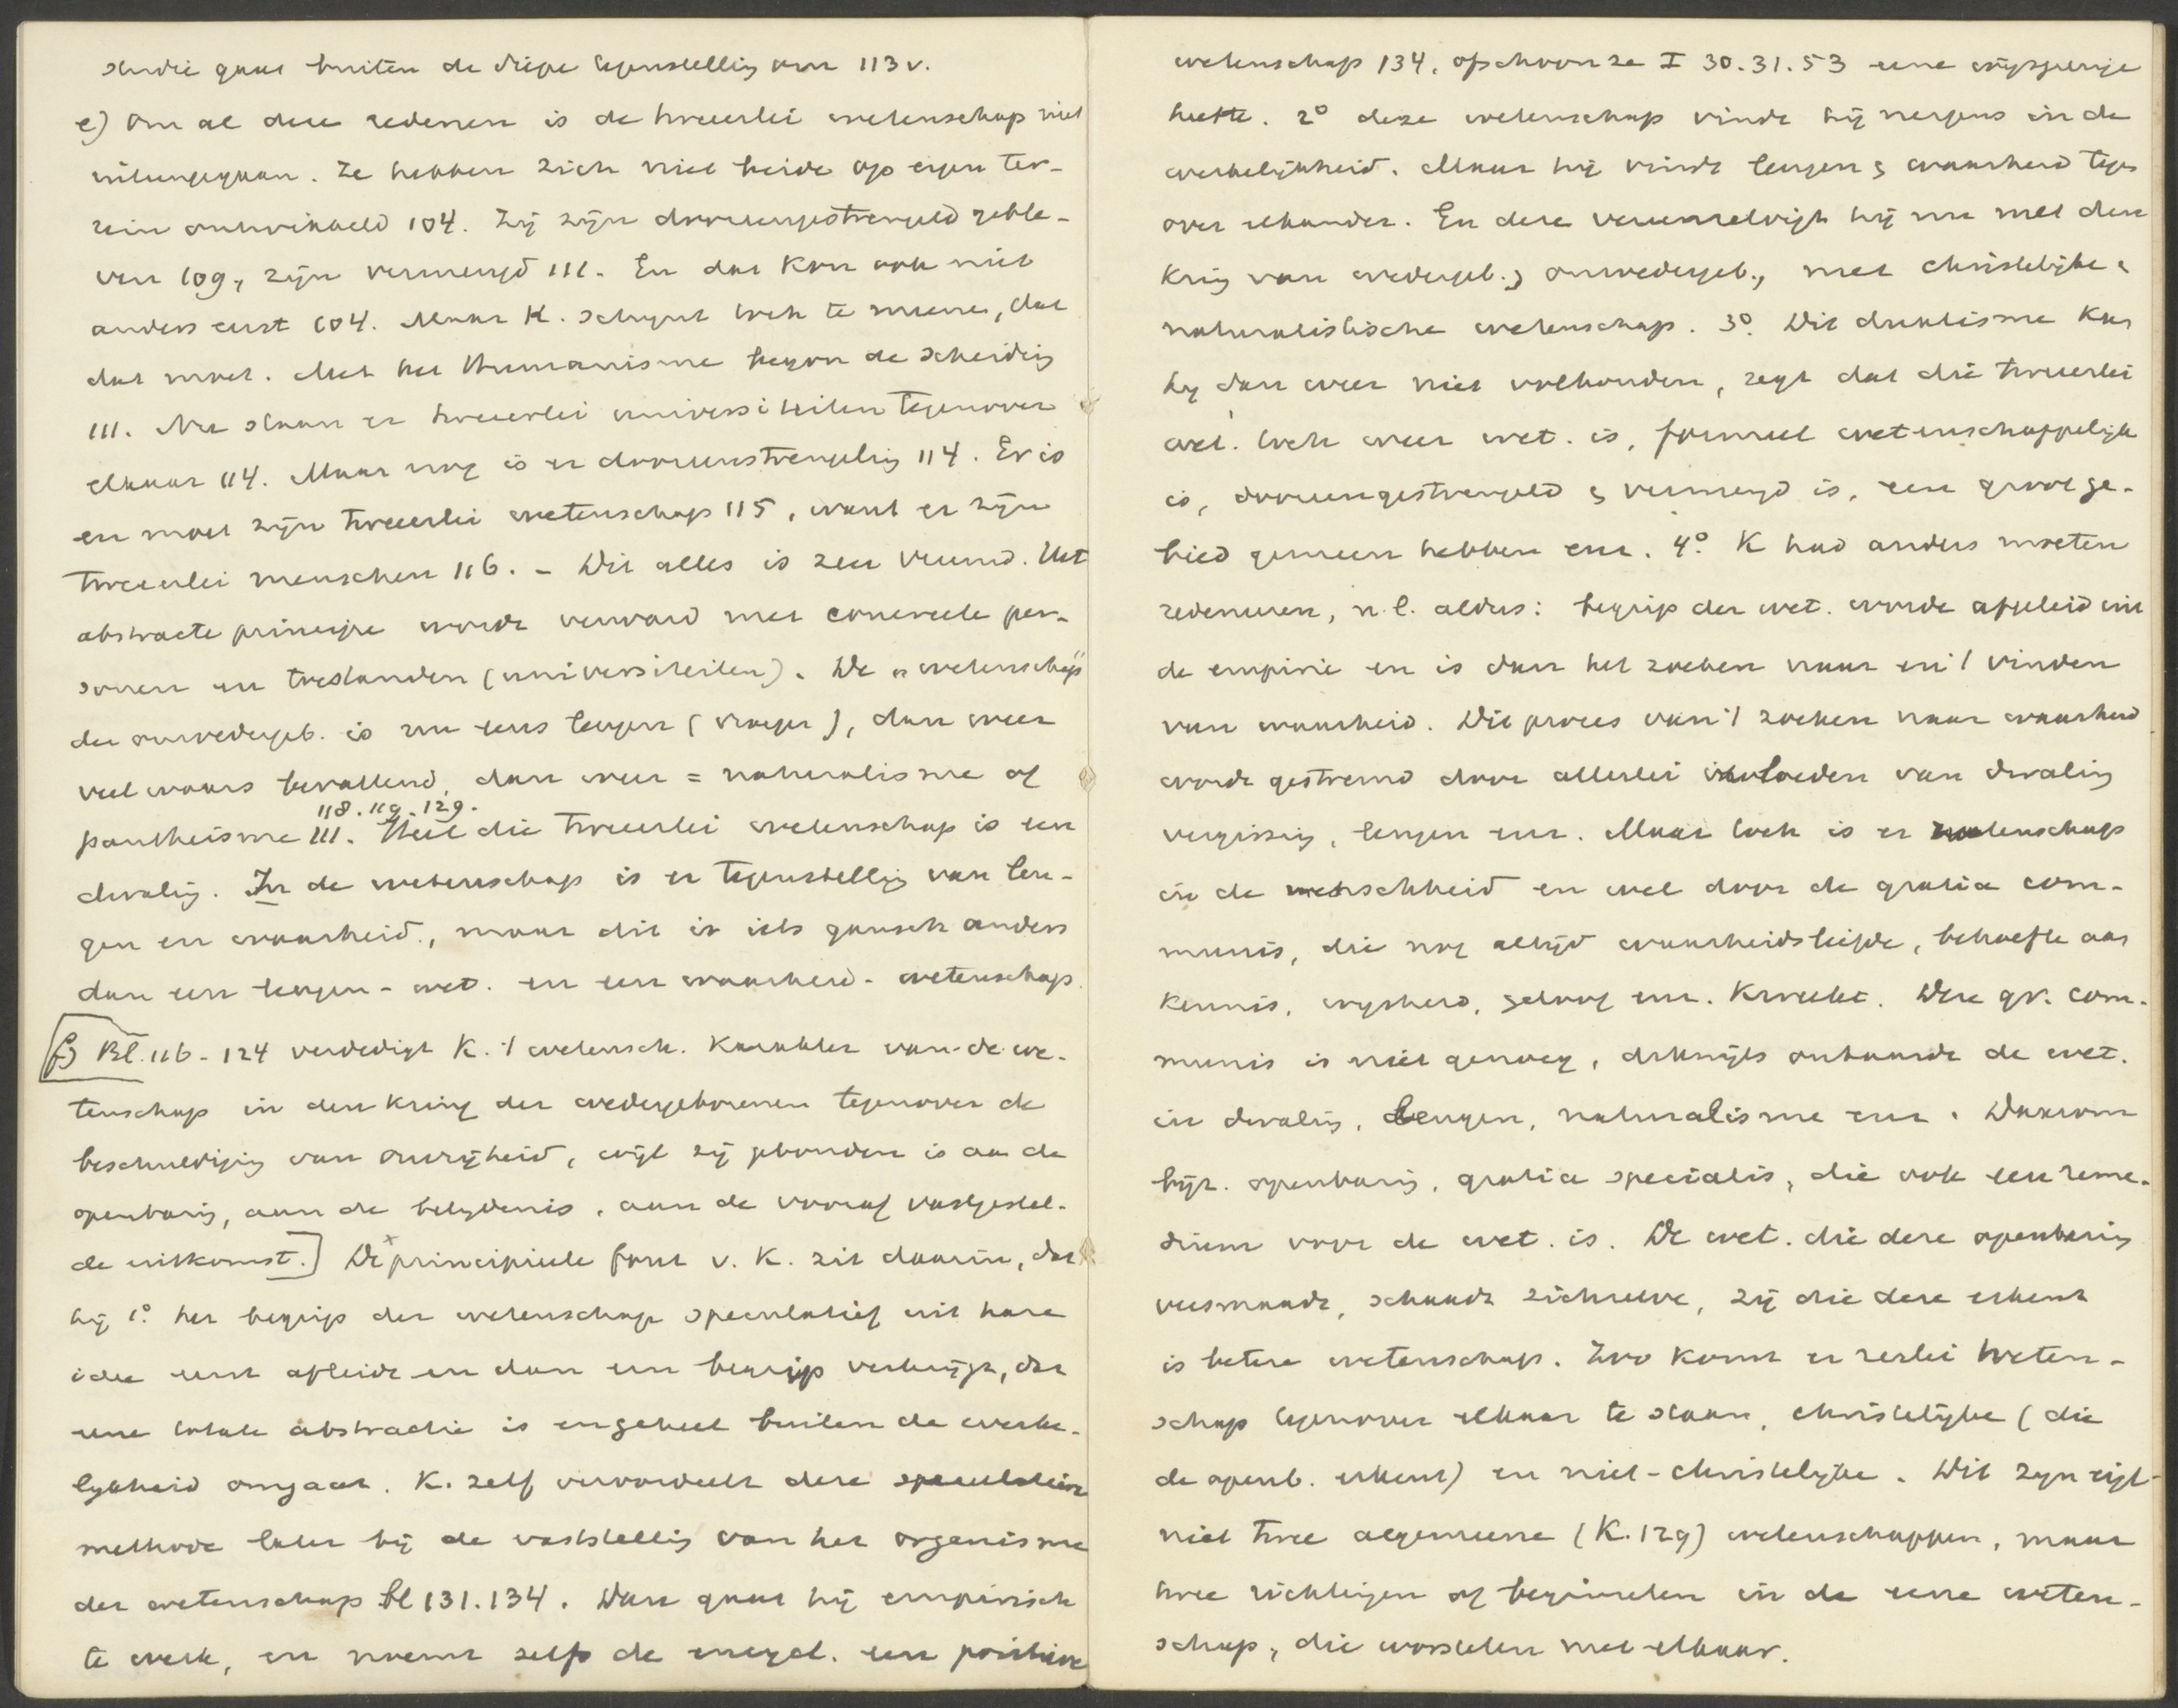 studie gaat buiten de diepe tegenstelling om 113v.
e) Om al deze redenen is de tweeërlei wetenschap niet
uiteengegaan. Ze hebben zich niet beide op eigen ter-
rein ontwikkeld 104. Zij zijn dooreengestrengeld geble-
ven 109, zijn vermengd 111. En dat kon ook niet
anders eerst 104. Maar K. schijnt toch te meenen, dat
dat moet. Met het Humanisme begon de scheiding
111. Nu staan er tweeërlei universiteiten tegenover
elkaar 114. Maar nog is er dooreenstrengeling 114. Er is
en moet zijn tweeërlei wetenschap 115, want er zijn
tweeërlei menschen 116. - Dit alles is zeer vreemd. Het
abstracte principe wordt verward met concreete per-
sonen en toestanden (universiteiten). De "wetenschap"
der onwedergeb. is nu eens leugen (vroeger), dan weer
veel waars bevattend, dan weer = naturalisme of
118. 119. 129.
pantheisme 111. Heel die tweeërlei wetenschap is een
dwaling. In de wetenschap is er tegenstelling van leu-
gen en waarheid, maar dit is iets gansch anders
dan een leugen-wet. en een waarheid-wetenschap.
f) Bl. 116-124 verdedigt K. 't wetensch. karakter van de we-
tenschap in den kring der wedergeborenen tegenover de
beschuldiging van onvrijheid, wijl zij gebonden is aan de
openbaring, aan de belijdenis, aan de vooraf vastgestel-
de uitkomst.] De principieele fout v. K. zit daarin, dat
hij 1° het begrip der wetenschap speculatief uit hare
idee eerst afleidt en dan een begrip verkrijgt, dat
eene totale abstractie is en geheel buiten de werke-
lijkheid omgaat. K. zelf veroordeelt deze speculatieve
methode later bij de vaststelling van het organisme
der wetenschap bl 131. 134. Dan gaat hij empirisch
te werk, en noemt zelfs de encycl. een positieve
wetenschap 134, ofschoon ze I 30. 31. 53 eene wijsgeerige
heette. 2° deze wetenschap vindt hij nergens in de
werkelijkheid. Maar hij vindt leugen & waarheid tegen
over elkander. En deze vereenzelvigt hij nu met den
kring van wedergeb. & onwedergeb., met christelijke &
naturalistische wetenschap. 3°. Dit dualisme kan
hij dan weer niet volhouden, zegt dat die tweeërlei
wet. toch weer wet. is, formeel wetenschappelijk
is, dooreengestrengeld & vermengd is, een groot ge-
bied gemeen hebben enz. 4°. K had anders moeten
redeneeren, n.l. aldus: begrip der wet. wordt afgeleid uit
de empirie en is dan het zoeken naar en 't vinden
van waarheid. Dit proces van 't zoeken naar waarheid
wordt gestremd door allerlei invloeden van dwaling
vergissing, leugen enz. Maar toch is er wetenschap
in de menschheid en wel door de gratia com-
munis, die nog altijd waarheidsliefde, behoefte aan
kennis, wijsheid, geloof enz. kweekt. Deze gr. com-
munis is niet genoeg, dikwijls ontaardt de wet.
in dwaling, leugen, naturalisme enz. Daarom
bijz. openbaring, gratia specialis, die ook een reme-
dium voor de wet. is. De wet. die deze openbaring
versmaadt, schaadt zichzelve, zij die deze erkent
is betere wetenschap. Zoo komt er 2erlei weten-
schap tegenover elkaar te staan, christelijke (die
de openb. erkent) en niet-christelijke. Dit zijn eigl
niet twee algemeene (K. 129) wetenschappen, maar
twee richtingen of beginselen in de eene weten-
schap, die worstelen met elkaar.